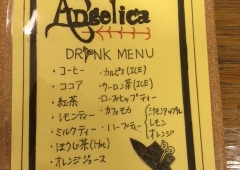 Angelica
DRINK MENU
・コーヒー
・ココア
・紅茶
・レモンティー
・ミルクティー
・ほうじ茶(Hot)
・オレンジジュース
・カルピス(ICE)
・ウーロン茶(ICE)
・ローズヒップティー
・カフェモカ
・ハーブティー
レモン
オレンジ